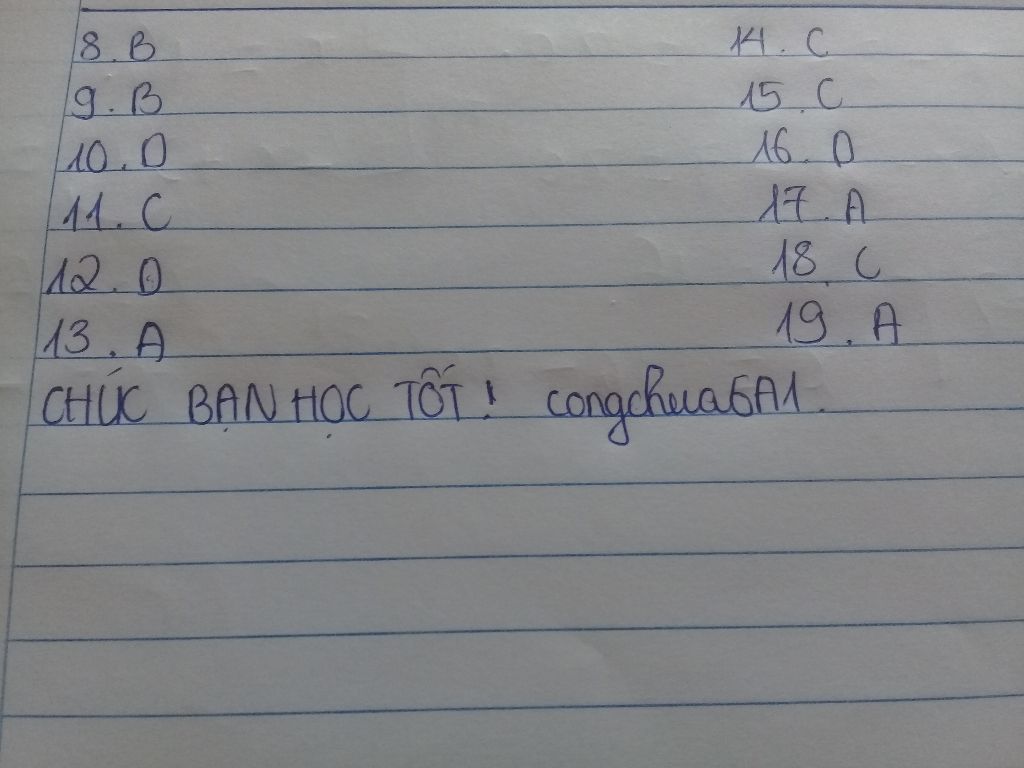 8. B 14. C
9. B 15. C
10. D 16. D
11. C 17. A
12. D 18. C
13. A 19. A
CHÚC BẠN HỌC TỐT! congchua5A1.